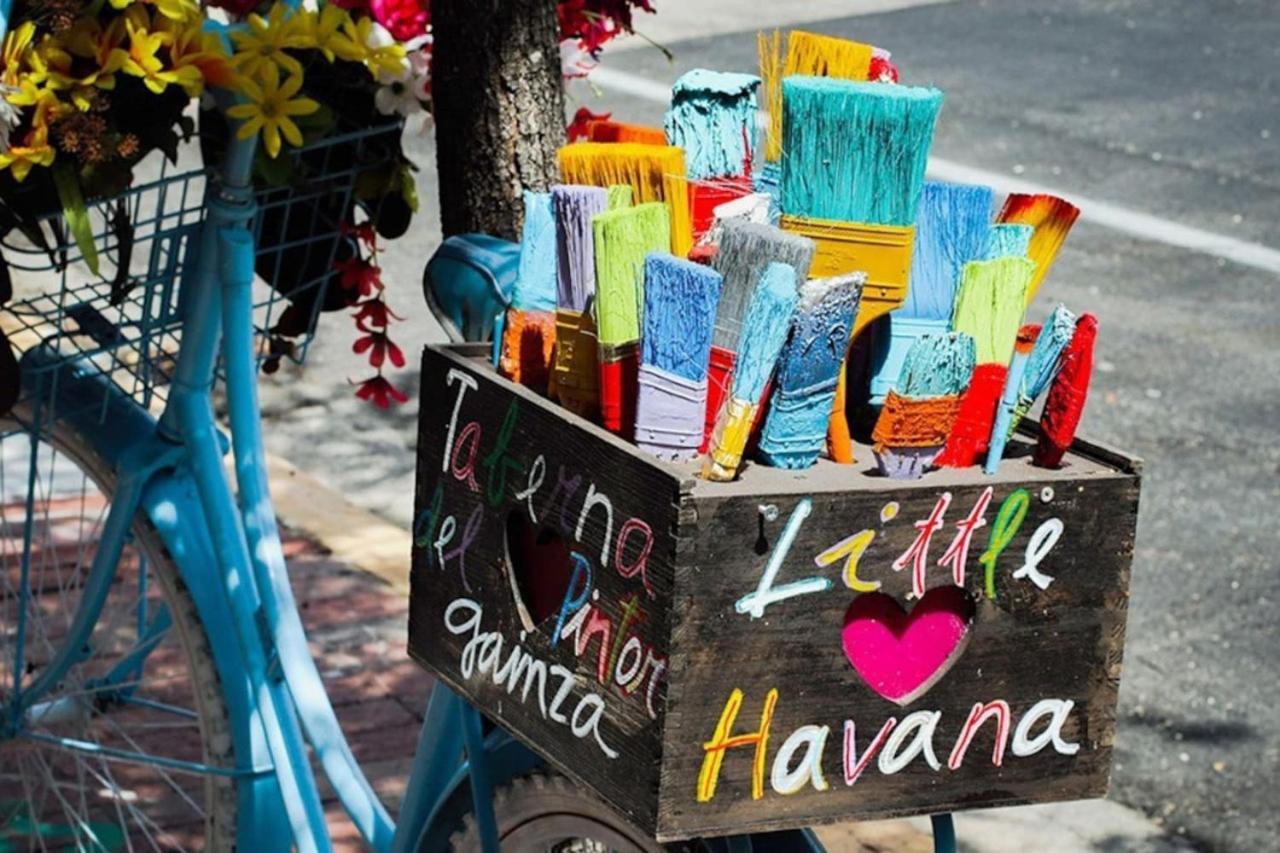 Taberna
del Pintor
gainza
Little
Havana